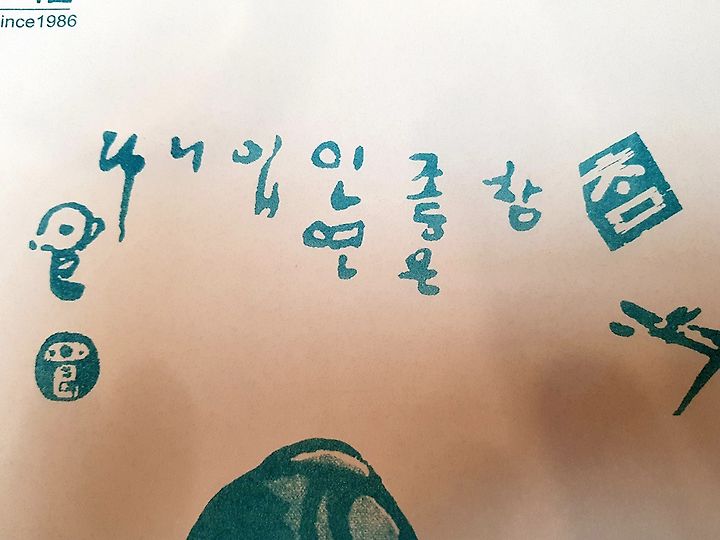 ince1986
참
좋은
인연
입
니
다